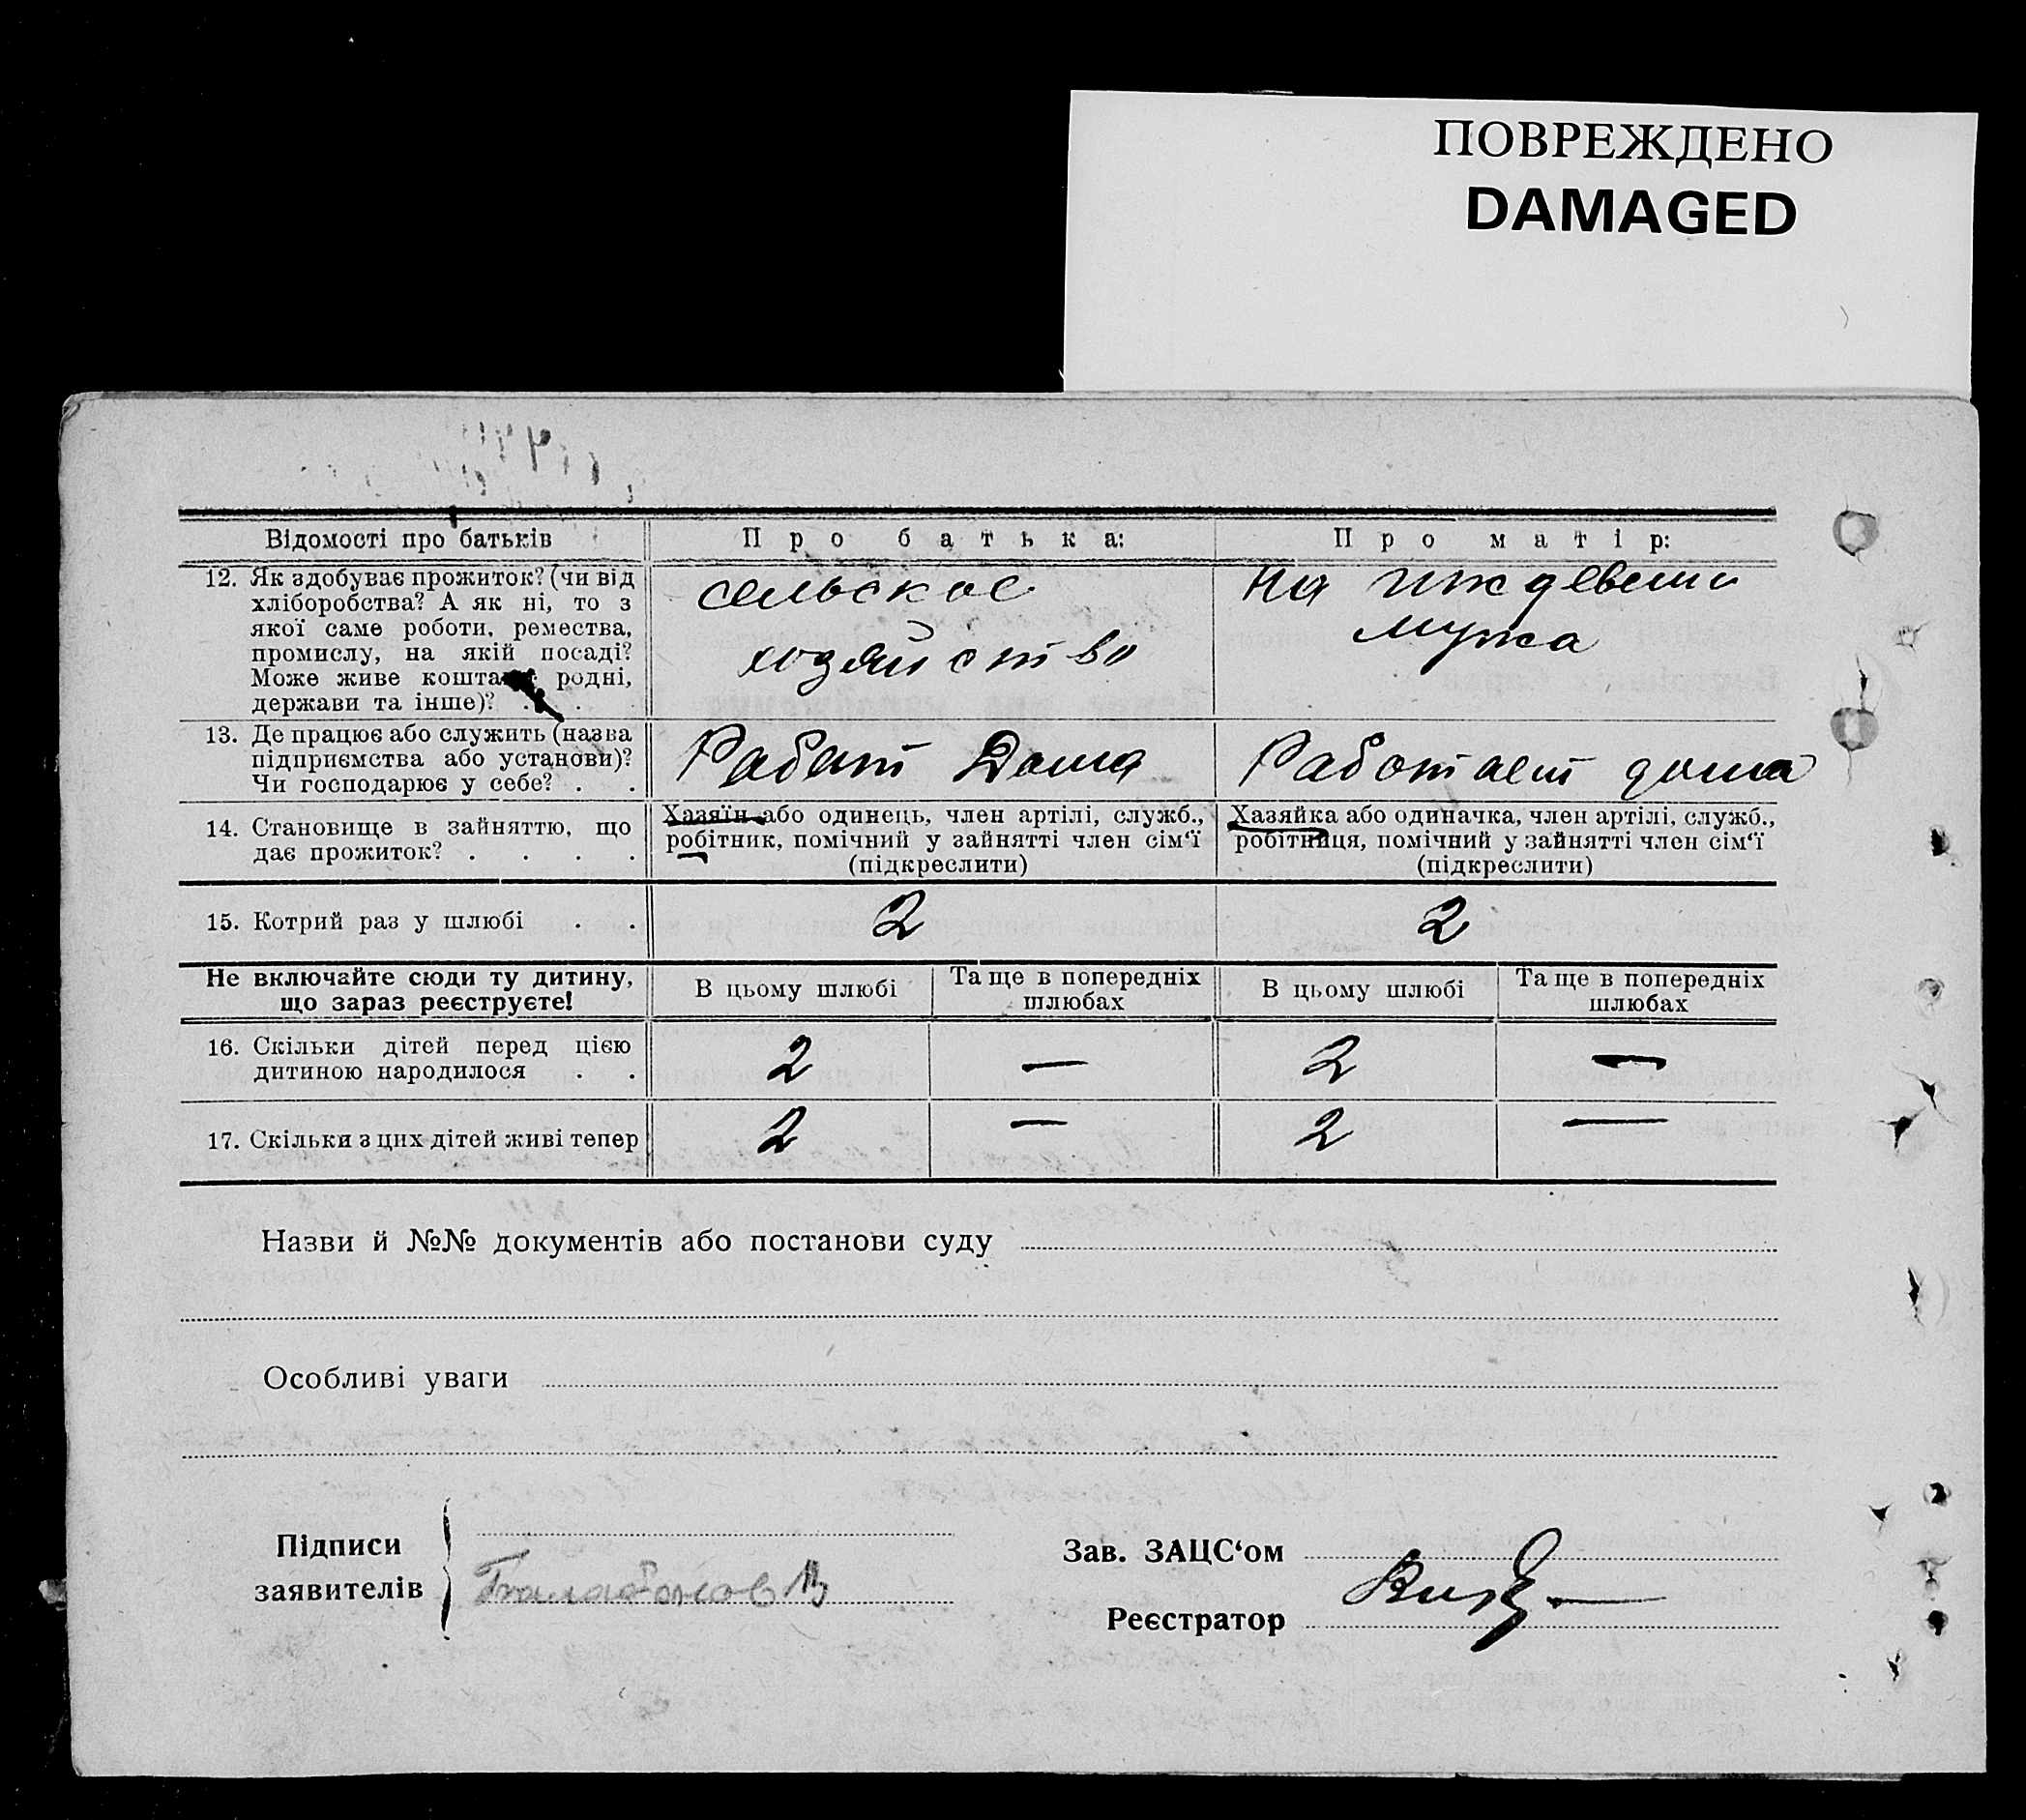 ПОВРЕЖДЕНО
DAMAGED
Відомості про батьків
Про батька:
Про матір:
12. Як здобуває прожиток? (чи від
хліборобства? А як ні, то з
якої саме роботи, ремества,
промислу, на якій посаді?
Може живе родні,
держави та інше)? . .
сельское
хозяйство
на иждевении
мужа
13. Де працює або служить (назва
підприємства або установи)?
Чи господарює у себе? . .
Работ Дома
Работает дома
14. Становище в зайняттю, що
дає прожиток? . . . .
Хазяїн або одинець, член артілі, служб.,
робітник, помічний у зайнятті член сім‘ї
(підкреслити)
Хазяйка або одиначка, член артілі, служб.,
робітниця, помічний у зайнятті член сім‘ї
(підкреслити)
15. Котрий раз у шлюбі . .
2
2
Не включайте сюди ту дитину,
що зараз реєструєте!
В цьому шлюбі
Та ще в попередніх
шлюбах
В цьому шлюбі
Та ще в попередніх
шлюбах
16. Скільки дітей перед цією
дитиною народилося . .
2
—
2
—
17. Скільки з цих дітей живі тепер
2
—
2
—
Назви й №№ документів або постанови суду
Особливі уваги
Підписи
заявителів
Зав. ЗАЦС‘ом
Реєстратор